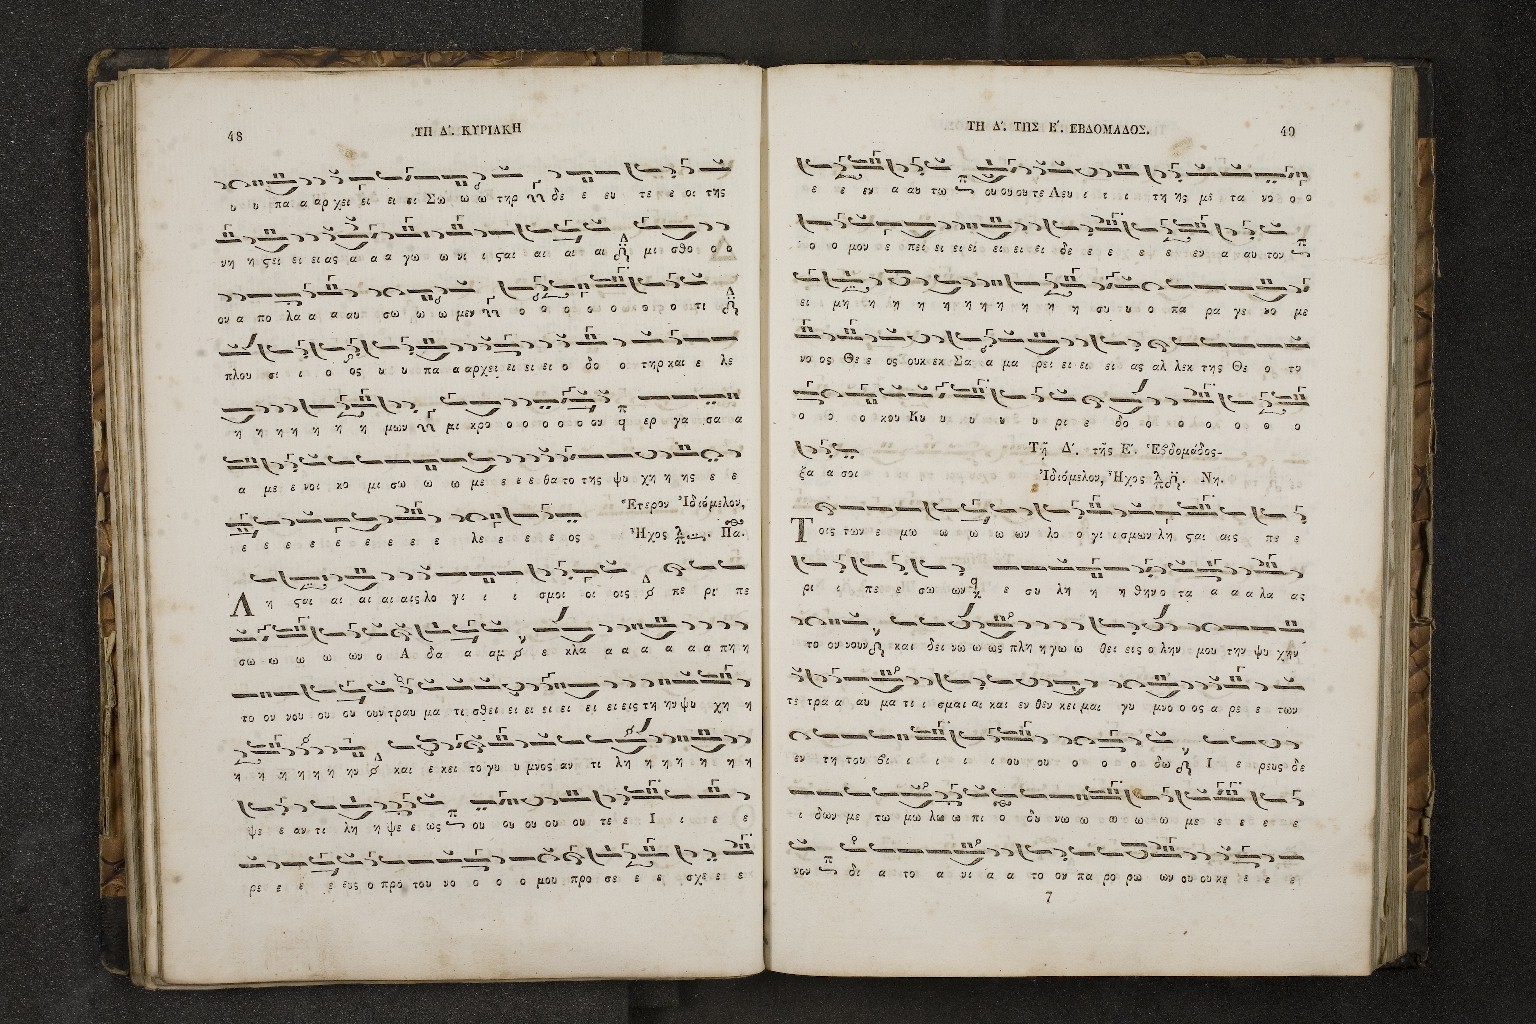 48
ΤΗ Δ΄. ΚΥΡΙΑΚΗ
υ υ πα α αρ χει ει ει ει Σω ω ω τηρ δε ε ευ τε ε οι της
νη η ςει ει ει ας α α α γω ω νι ι ςαι αι αι αι αι μι σθο ο ο
ον α πο λα α α αυ σω ω ω μεν ο ο ο ο ο ο ο ο τι
πλου σι ι ο ος υ υ πα α αρχει ει ει ει ει ο δο ο τηρ και ε λε
η η η η η η η μων μι κρο ο ο ο ο ο ου ερ γα σα α
α με ε νοι κο μι σω ω ω με ε ε ε θα το της ψυ χη η ης ε ε
Ἕτερον Ἰδιόμελον,
ε ε ε ε ε ε ε ε ε λε ε ε ε ε ος Ἦχος Πα.
Λη ςαι αι αι αι αις λο γι ι ι σμοι οι οις πε ρι πε
σω ω ω ω ω ων ο Α δα α αμ ε κλα α α α α α α πη η
το ον νου ου ου ουν τραυ μα τι σθει ει ει ει ει ει ει ει εις τη ην ψυ χη η
η η η η η η ην και ε κει το γυ υ μνος αν τι λη η η η η η η
ψε ε αν τι λη η ψε ε ως ου ου ου ου ου τε ε Ι ι ε ε
ρε ε ε ε ευς ο προ του νο ο ο ο μου προ σε ε ε σχε ε ε
ΤΗ Δ΄. ΤΗΣ Ε΄. ΕΒΔΟΜΑΔΟΣ.
49
ε ε εν α αυ τω ου ου ου τε Λευ ι τι τη ης με τα νο ο ο
ο ο μον ε πει ει ει ει ει ει ει ει δε ε ε ε ε ε εν α αυ τον
ει μη η η η η η η η η η η συ υ ο πα ρα γε νο με
νο ος Θε ε ος ουκ εκ Σα α μα ρει ει ει ει ει ας αλ λεκ της Θε ο το
ο ο ο κου Κυ υ υ υ υ υ ρι ε δο ο ο ο ο ο ο ο
Τῇ Δ΄. τῆς Ε΄. Ἑβδομάδος
ξα α σοι Ἰδιόμελον, Ἦχος Νη.
Τοις των ε μω ω ω ω ων λο ο γι ι σμων λη ςαι αις πε ε
ρι ι πε ε σω ων ε συ λη η η θην ο τα α α α λα ας
το ον νουν και δει νω ω ως πλη η γω ω θει εις ο λην μου την ψυ χην
τε τρα α αυ μα τι ι σμαι αι και εν θεν κει μαι γυ μνο ο ος α ρε ε των
εν τη του βι ι ι ι ι ου ου ο ο ο δω Ι ε ρευς δε
ι δων με τω μω λω ω πι ο δυ νω ω ω ω ω με ε ε ε ε
νον δι α το α νι α α το ον πα ρο ρω ων ου ου κε ε ε ε
7